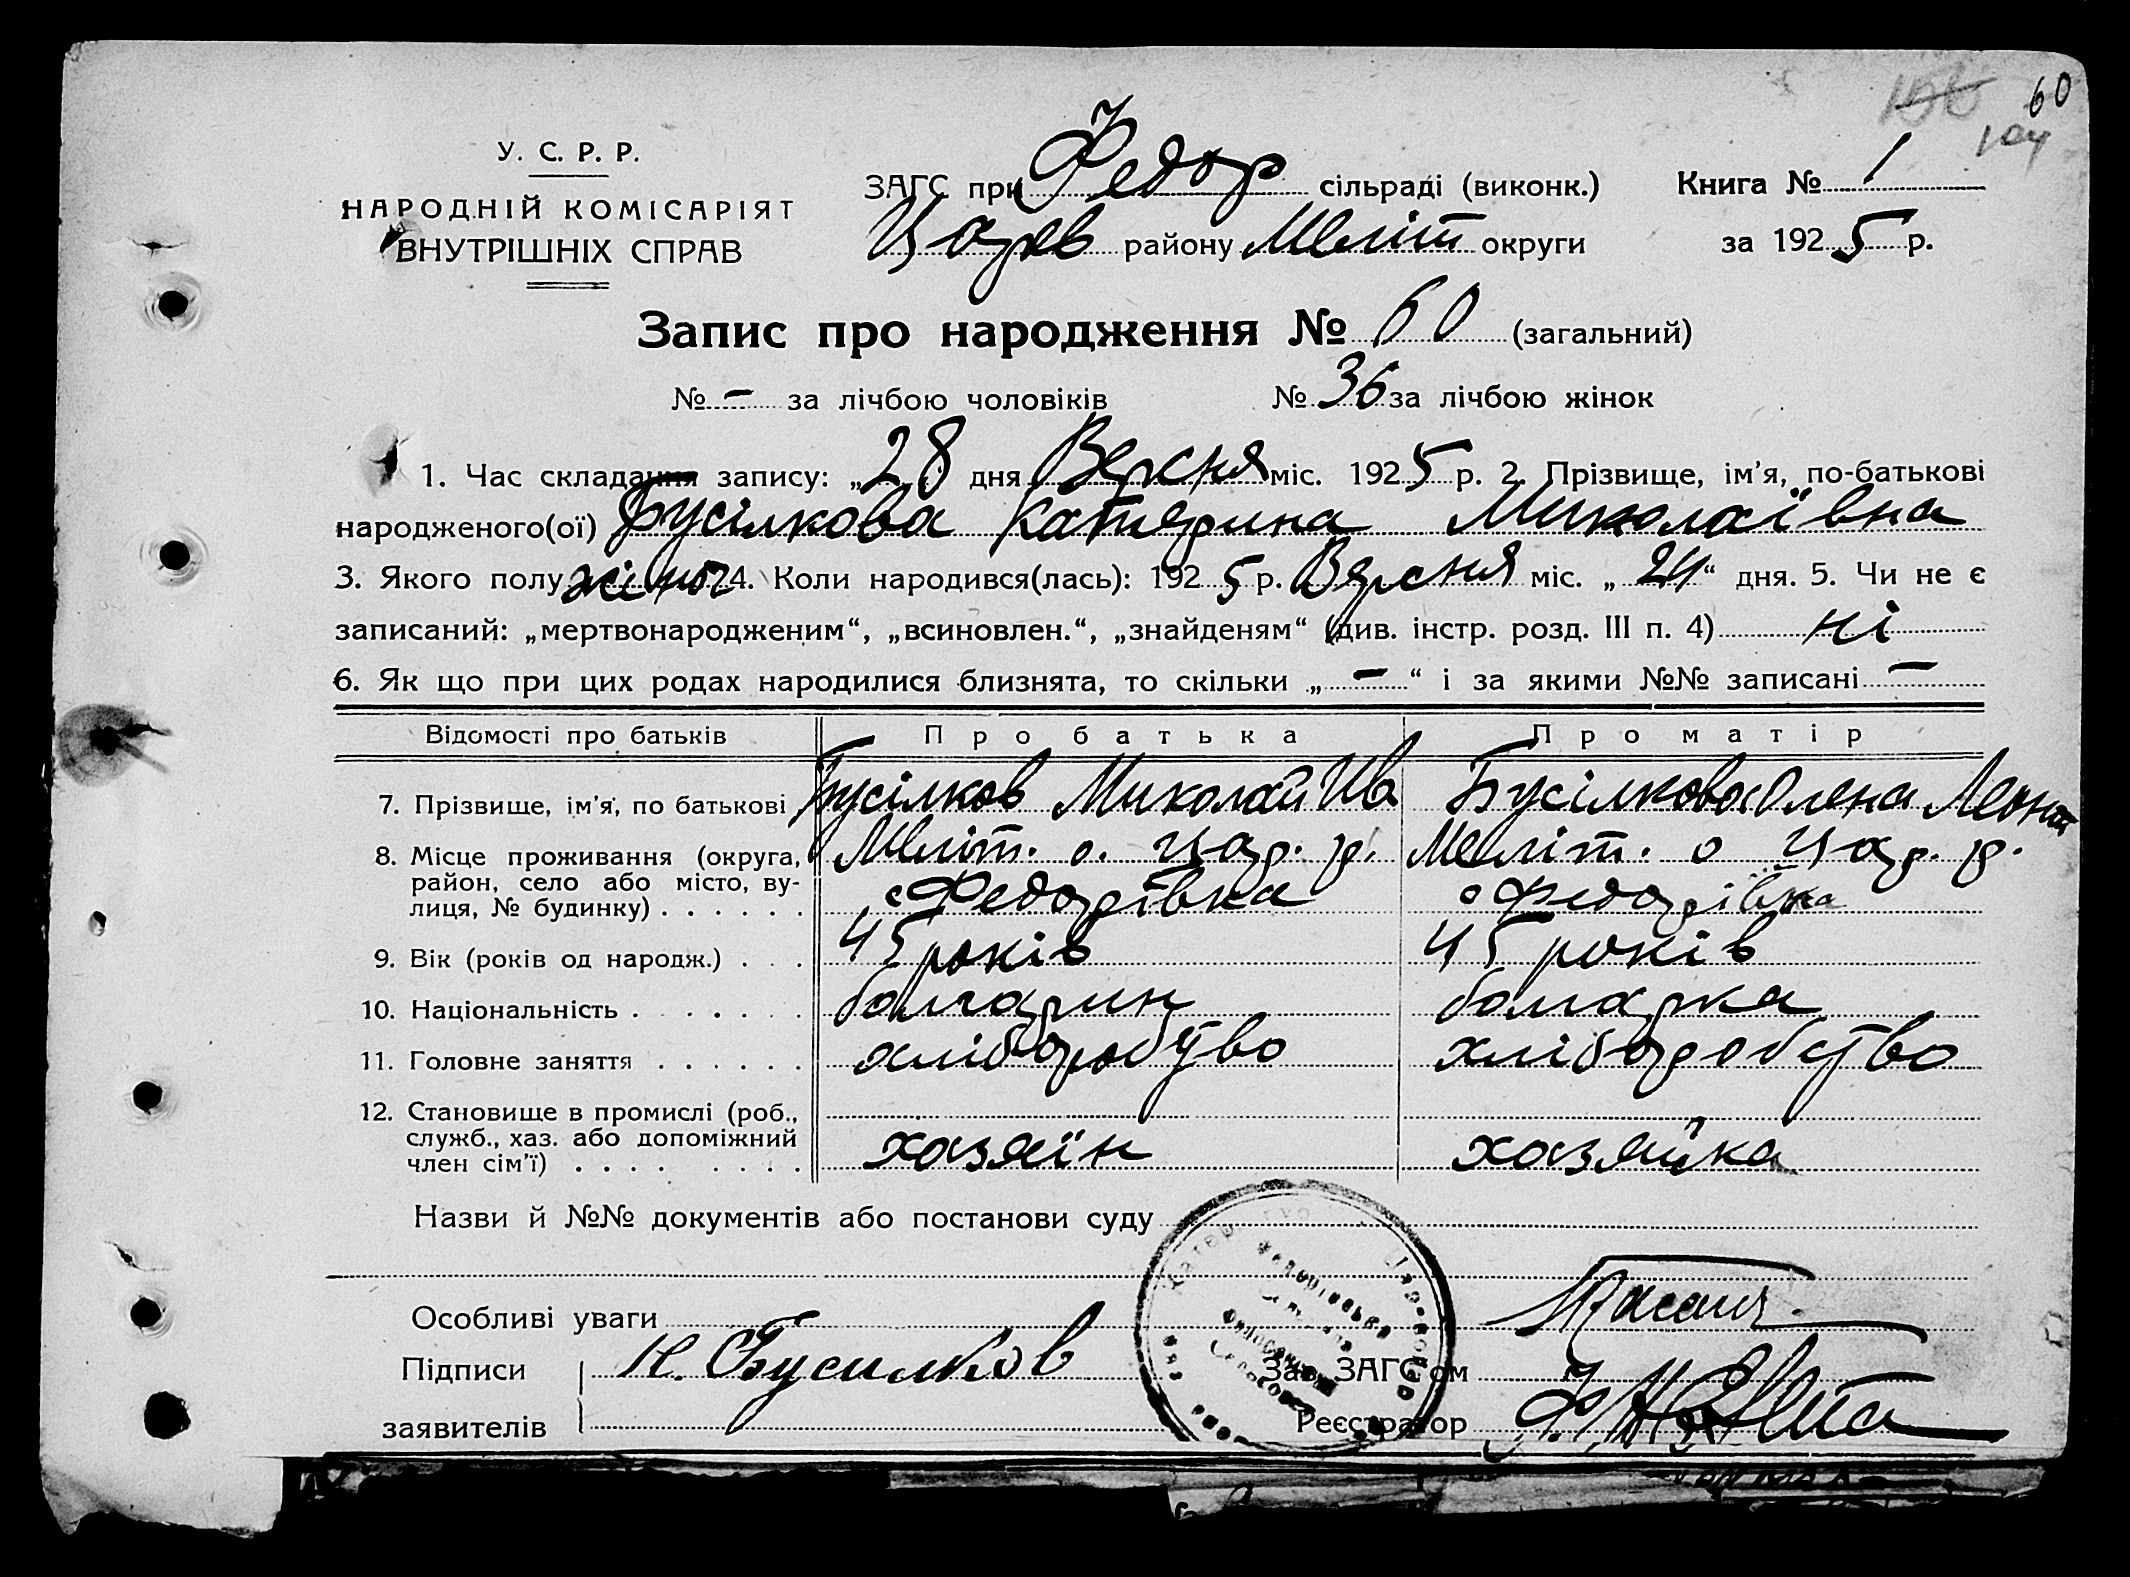 60
104
У. С. Р. Р.
НАРОДНІЙ КОМІСАРІЯТ
ВНУТРІШНІХ СПРАВ
ЗАГС при Федор сільраді (виконк.) Книга № 1
Царев району Меліт округи за 1925 р.
Запис про народження № 60 (загальний)
№ – за лічбою чоловіків № 36 за лічбою жінок
1. Час складання запису: „28 дня Версня міс. 1925 р. 2. Прізвище, ім'я, по-батькові
народженого(ої) Бусілкова Катерина Миколаївна
3. Якого полу жіноч 4. Коли народився(лась): 1925 р. Версня міс. „24“ дня. 5. Чи не є
записаний: „мертвонародженим“, „всиновлен.“, „знайденям“ (див. інстр. розд. III п. 4) ні
6. Як що при цих родах народилися близнята, то скільки „–“ і за якими №№ записані –
Відомості про батьків Про батька Про матір
7. Прізвище, ім'я, по батькові Бусілков Миколай Ив Бусілкова Олена Леонт
8. Місце проживання (округа, Меліт. о. Цар. р. Меліт. о Цар. р.
район, село або місто, ву- с Федорівка с Федорівка
лиця, № будинку) . . . . . .
9. Вік (років од народж.) . . . 45 років 45 років
10. Національність . . . . . . . болгарин болгарка
11. Головне заняття . . . . . . хліборобство хліборобство
12. Становище в промислі (роб.,
служб., хаз. або допоміжний хазяїн хазяйка
член сім'ї) . . . . . . . .
Назви й №№ документів або постанови суду
Особливі уваги
Підписи Н. Бусилков Зав. ЗАГС'ом
заявителів Реєстратор